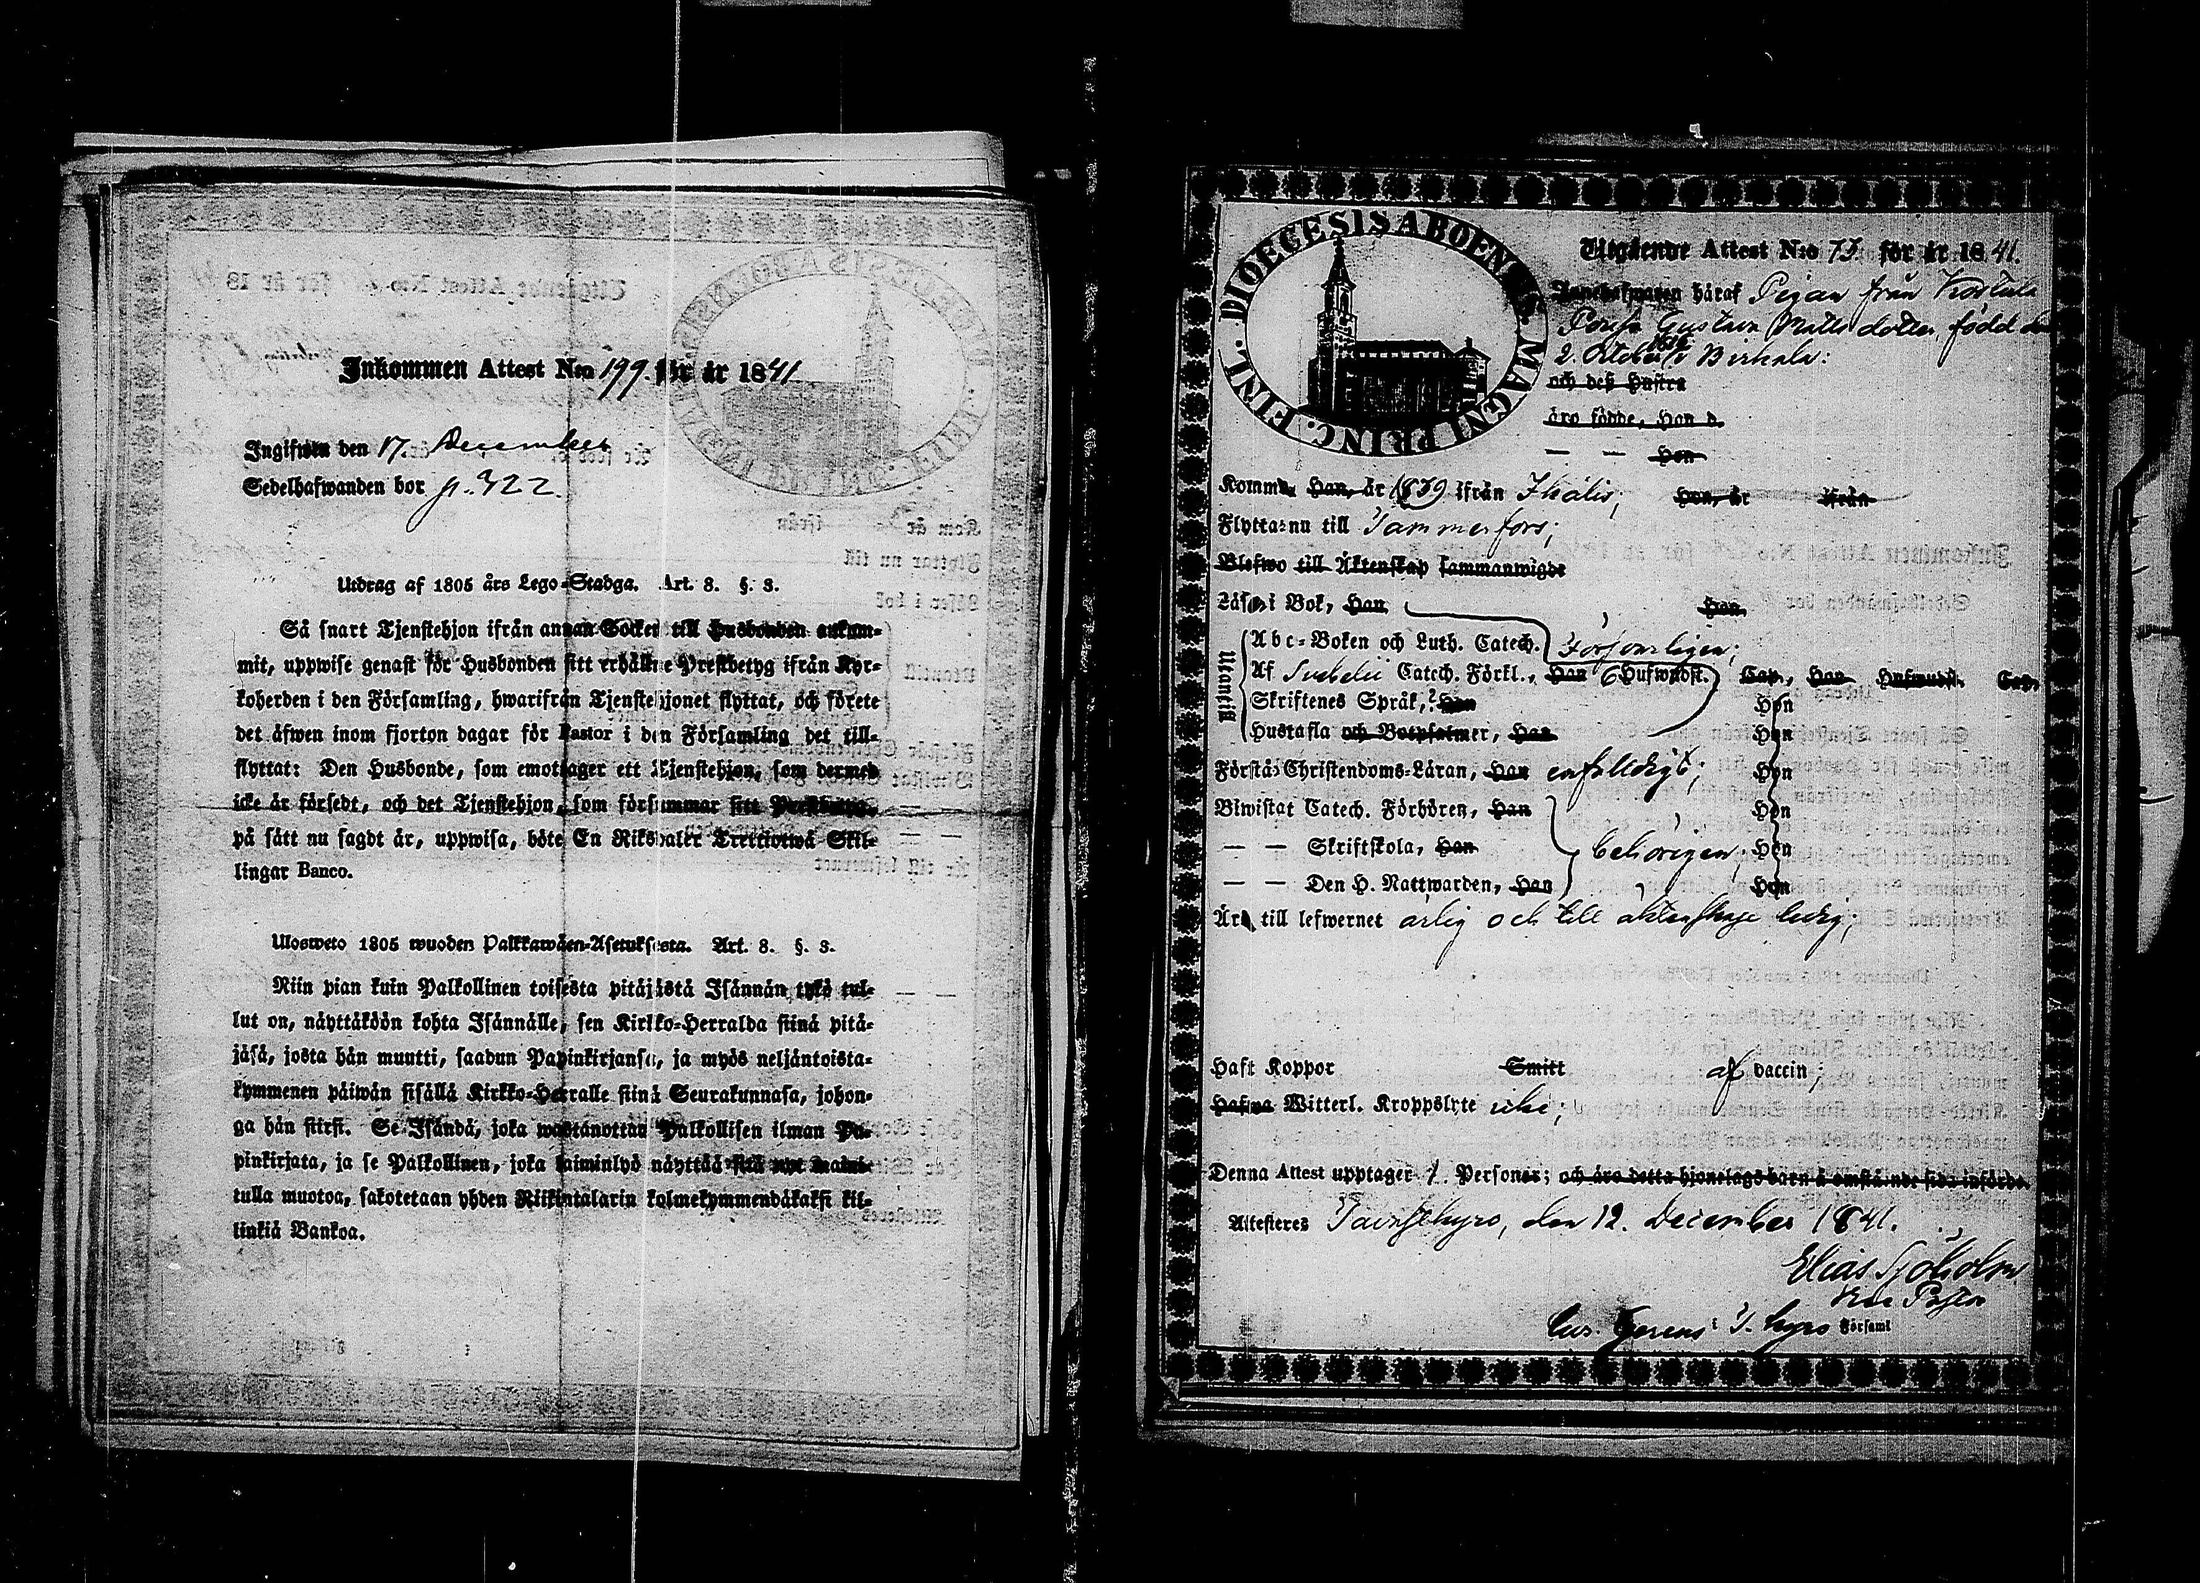 Inkommen Attest N:o 199. för år 1841
Ingifwen den 17. December
Sedelhafwanden bor p. 322.
Utdrag af 1805 års Lego-Stadga. Art. 8. §. 3.
Så snart Tjenstehjon ifrån annan Socken till Husbonden ankom-
mit, uppwise genast för Husbonden sitt erhållne Prestbetyg ifrån Kyr-
koherden i den Församling, hwarifrån Tjenstehjonet flyttat, och förete
det äfwen inom fjorton dagar för Pastor i den Församling det till-
flyttat: Den Husbonde, som emottager ett Tjenstehjon, som dermed
icke är försedt, och det Tjenstehjon, som försummar sitt Prestbetyg,
på sätt nu sagdt är, uppwisa, böte En Riksdaler Trettiotwå Skil-
lingar Banco.
Ulosweto 1805 wuoden Palkkawäen-Asetuksesta. Art. 8. §. 3.
Niin pian kuin Palkollinen toisesta pitäjästä Isännän tykö tul-
lut on, näyttäköön kohta Isännälle, sen Kirkko-Herralda siinä pitä-
jäsä, josta hän muutti, saadun Papinkirjansa, ja myös neljäntoista-
kymmenen päiwän sisällä Kirkko-Herralle siinä Seurakunnasa, johon-
ga hän siirsi. Se Isändä, joka wastanottaa Palkollisen ilman Pa-
pinkirjata, ja se Palkollinen, joka laiminlyö näyttää sitä nyt maini-
tulla muotoa, sakotetaan yhden Riikintalarin kolmekymmendäkaksi kil-
linkiä Bankoa.
DIOECESIS ABOENSIS MAGNI PRINC. FINL.
Utgående Attest N:o 75. för år 1841.
Innehafwaren häraf Pigan från Kostula
Gustava Matts dotter, född den
2. October i Birkala:
och deß Hustru
äro födde, Han d.
— — Hon
Komm. Han, år 1839 ifrån Ikalis; Hon, år ifrån
Flyttar nu till Tammerfors;
Blefwo till Äktenskap sammanwigde
Läser i Bok, Han Hon
Utantill
Abc-Boken och Luth. Catech. Försvarligen;
Af Svebelii Catech. Förkl., Han 6 Hufwudst. Cap., Hon Hufwudst. Cap.
Skriftenes Språk, Han Hon
Hustafla och Botpsalmer, Han Hon
Förstår Christendoms-Läran, Han enfalldigt; Hon
Biwistat Catech. Förhören, Han Hon
— — Skriftskola, Han behörigen; Hon
— — Den H. Nattwarden, Han Hon
Är till lefwernet ärlig och till äktenskap ledig;
Haft Koppor Smitt af vaccin;
Hafwa Witterl. Kroppslyte icke;
Denna Attest upptager 1. Personer; och äro detta hjonelags barn å omstående sida införde.
Attesteres Tavastkyro, den 12. December 1841.
Elias Sjöholm
Vice Pastor
Cur. Gerens i T. kyro Församl